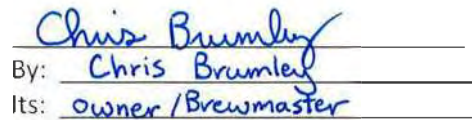 Chris Brumley
By: Chris Brumley
Its: owner/Brewmaster